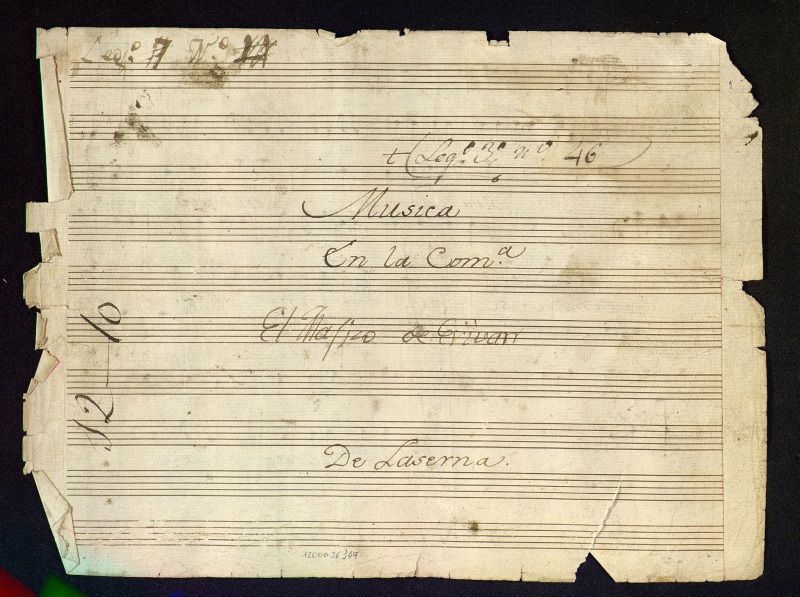 Leg.º 7 N.º
t (Leg.º 3.º n.º 46
Musica
En la Com.ª
El Magico de Erivan
De Laserna.
12 10
1200026349